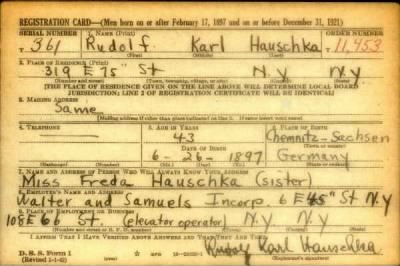 REGISTRATION CARD—(Men born on or after February 17, 1897 and on or before December 31, 1921)
SERIAL NUMBER 1. NAME (Print) ORDER NUMBER
T 361 Rudolf Karl Hauschka T 11,453
(First) (Middle) (Last)
2. PLACE OF RESIDENCE (Print)
319 E 75" St N.Y N.Y
(Number and street) (Town, township, village, or city) (County) (State)
[THE PLACE OF RESIDENCE GIVEN ON THE LINE ABOVE WILL DETERMINE LOCAL BOARD
JURISDICTION; LINE 2 OF REGISTRATION CERTIFICATE WILL BE IDENTICAL]
3. MAILING ADDRESS
Same
[Mailing address if other than place indicated on line 2. If same insert word same]
4. TELEPHONE 5. AGE IN YEARS 6. PLACE OF BIRTH
43 Chemnitz-Sachsen
DATE OF BIRTH
6-26-1897 Germany
7. NAME AND ADDRESS OF PERSON WHO WILL ALWAYS KNOW YOUR ADDRESS
Miss Freda Hauschka (sister)
8. EMPLOYER'S NAME AND ADDRESS
Walter and Samuels Incorp. 6 E 45" St N.Y
9. PLACE OF EMPLOYMENT OR BUSINESS
108 E 66 St. (elevator operator) N.Y N.Y
(Number and street or R. F. D. number) (Town) (County) (State)
I AFFIRM THAT I HAVE VERIFIED ABOVE ANSWERS AND THAT THEY ARE TRUE.
D. S. S. Form 1 Rudolf Karl Hauschka
(Revised 1-1-42) (Registrant's signature)